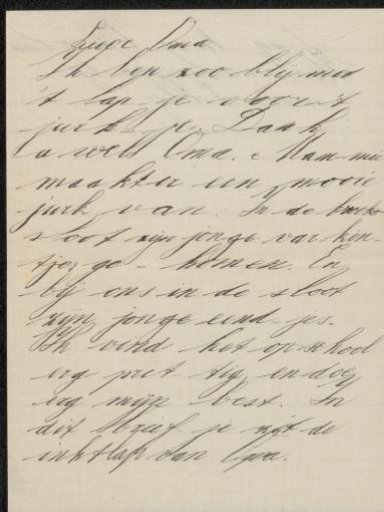 Lieve Oma
Ik ben zoo blij met
't lap-je voor 't
jurk-je. Dank
u wel Oma. Mam-mie
maakt er een mooie
jurk van. In de
sloot zijn jonge var-ken-
tjes ge-komen. En
bij ons in de sloot
zijn jonge eend-jes.
Ik vind het op school
erg pret-tig, en doe
erg mijn best. In
dit brief-je zit de
inktlap van Opa.